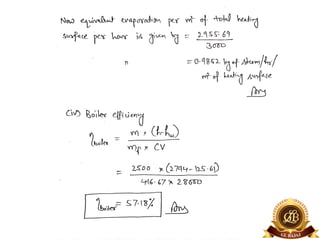 Now equivalent evaporation per m² of total heating
surface per hour is given by = 2955.69
3000
" = 0.9852 kg of steam/hr/
m² of heating surface
Ans
(iv) Boiler efficiency
η boiler = m × (h-hw)
mf × CV
= 2500 × (2794-125.61)
416.67 × 28000
η Boiler = 57.18% Ans